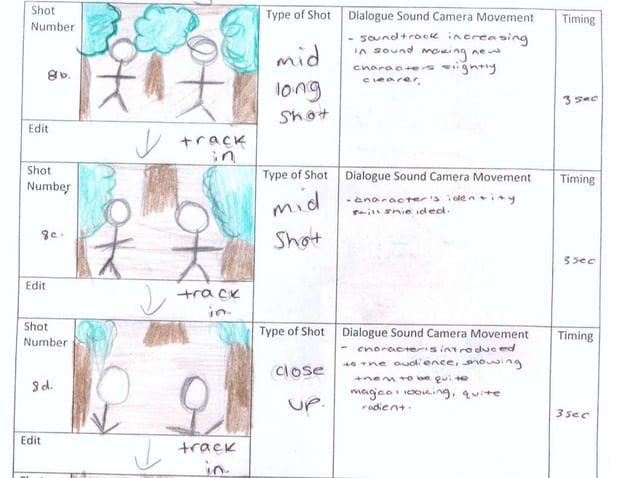 Shot
Number
Type of Shot
Dialogue Sound Camera Movement
Timing
8b.
mid
long
shot
- soundtrack increasing
in sound making new
characters slightly
clearer.
3 sec
Edit
track
in
Shot
Number
Type of Shot
Dialogue Sound Camera Movement
Timing
8c.
mid
shot
- character's identity
still shielded.
3 sec
Edit
track
in.
Shot
Number
Type of Shot
Dialogue Sound Camera Movement
Timing
8d.
close
up.
- character's introduced
to the audience, showing
them to be quite
magical looking, quite
radient.
3 sec
Edit
track
in.